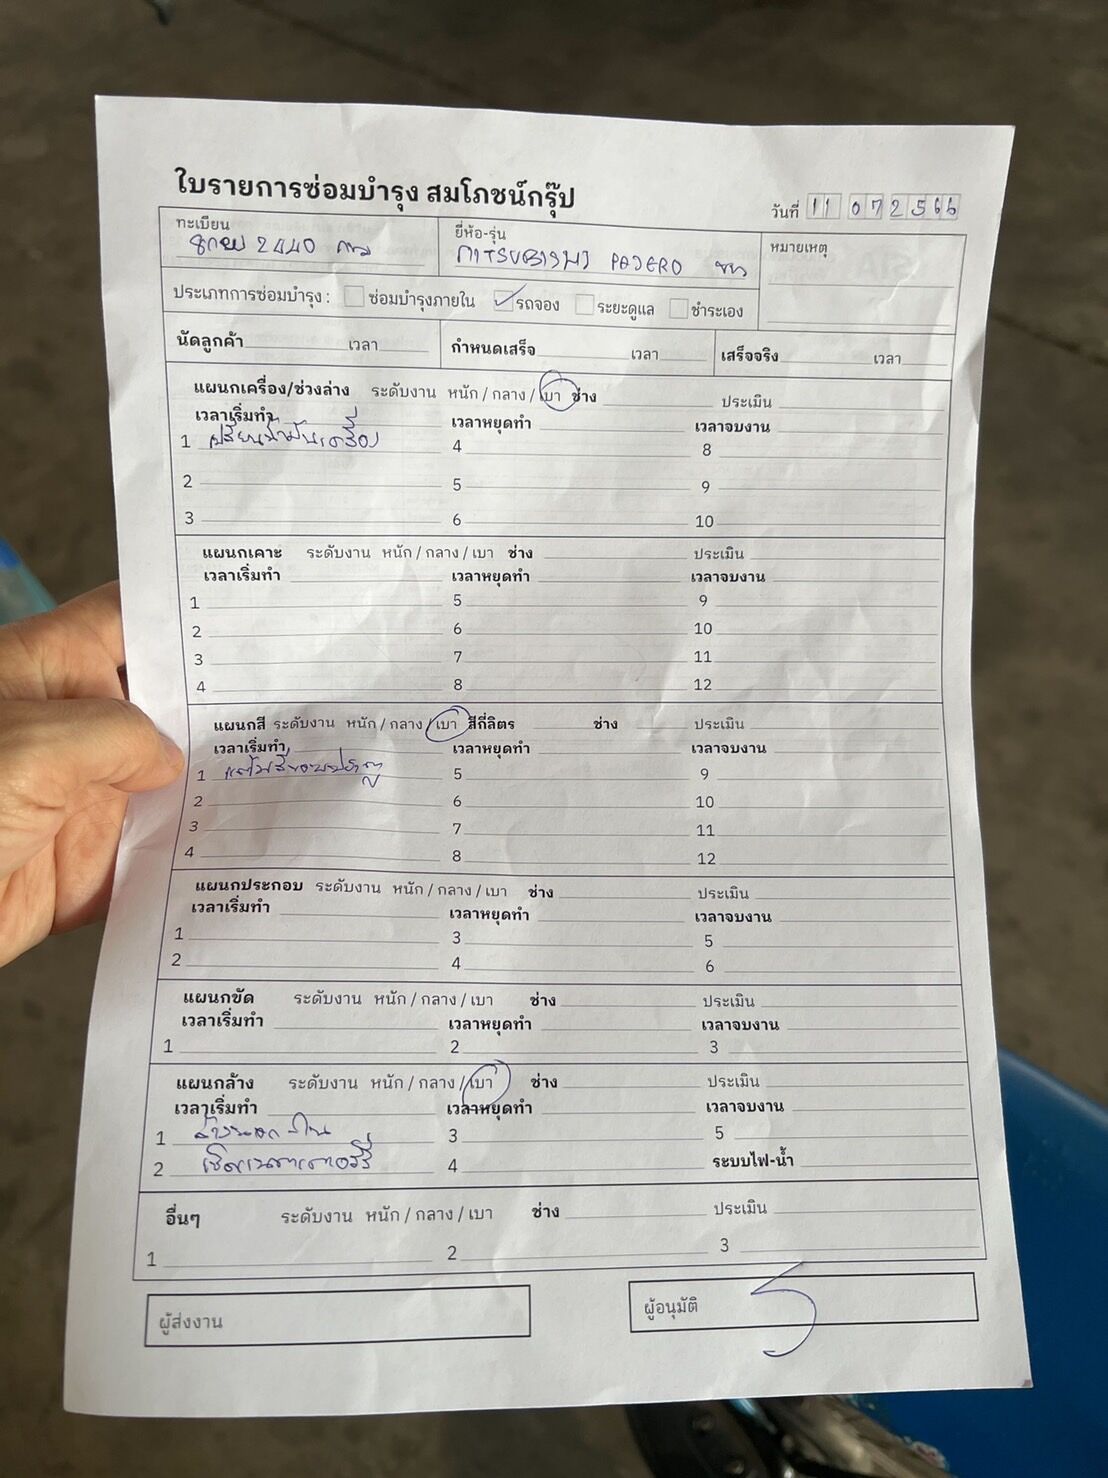 ใบรายการซ่อมบำรุง สมโภชน์กรุ๊ป
วันที่ 11 07 2566
ทะเบียน 2440 กทม
ยี่ห้อ-รุ่น MITSUBISHI PAJERO ขาว
หมายเหตุ
ประเภทการซ่อมบำรุง : ซ่อมบำรุงภายใน รถจอง ระยะดูแล ชำระเอง
นัดลูกค้า เวลา กำหนดเสร็จ เวลา เสร็จจริง เวลา
แผนกเครื่อง/ช่วงล่าง ระดับงาน หนัก / กลาง / เบา ช่าง ประเมิน
เวลาเริ่มทำ เวลาหยุดทำ เวลาจบงาน
1 เปลี่ยนน้ำมันเครื่อง 4 8
2 5 9
3 6 10
แผนกเคาะ ระดับงาน หนัก / กลาง / เบา ช่าง ประเมิน
เวลาเริ่มทำ เวลาหยุดทำ เวลาจบงาน
1 5 9
2 6 10
3 7 11
4 8 12
แผนกสี ระดับงาน หนัก / กลาง / เบา สีกี่ลิตร ช่าง ประเมิน
เวลาเริ่มทำ เวลาหยุดทำ เวลาจบงาน
1 5 9
2 6 10
3 7 11
4 8 12
แผนกประกอบ ระดับงาน หนัก / กลาง / เบา ช่าง ประเมิน
เวลาเริ่มทำ เวลาหยุดทำ เวลาจบงาน
1 3 5
2 4 6
แผนกขัด ระดับงาน หนัก / กลาง / เบา ช่าง ประเมิน
เวลาเริ่มทำ เวลาหยุดทำ เวลาจบงาน
1 2 3
แผนกล้าง ระดับงาน หนัก / กลาง / เบา ช่าง ประเมิน
เวลาเริ่มทำ เวลาหยุดทำ เวลาจบงาน
1 ล้างนอก ใน 3 5
2 เช็คแบตเตอรี่ 4 ระบบไฟ-น้ำ
อื่นๆ ระดับงาน หนัก / กลาง / เบา ช่าง ประเมิน
1 2 3
ผู้ส่งงาน
ผู้อนุมัติ